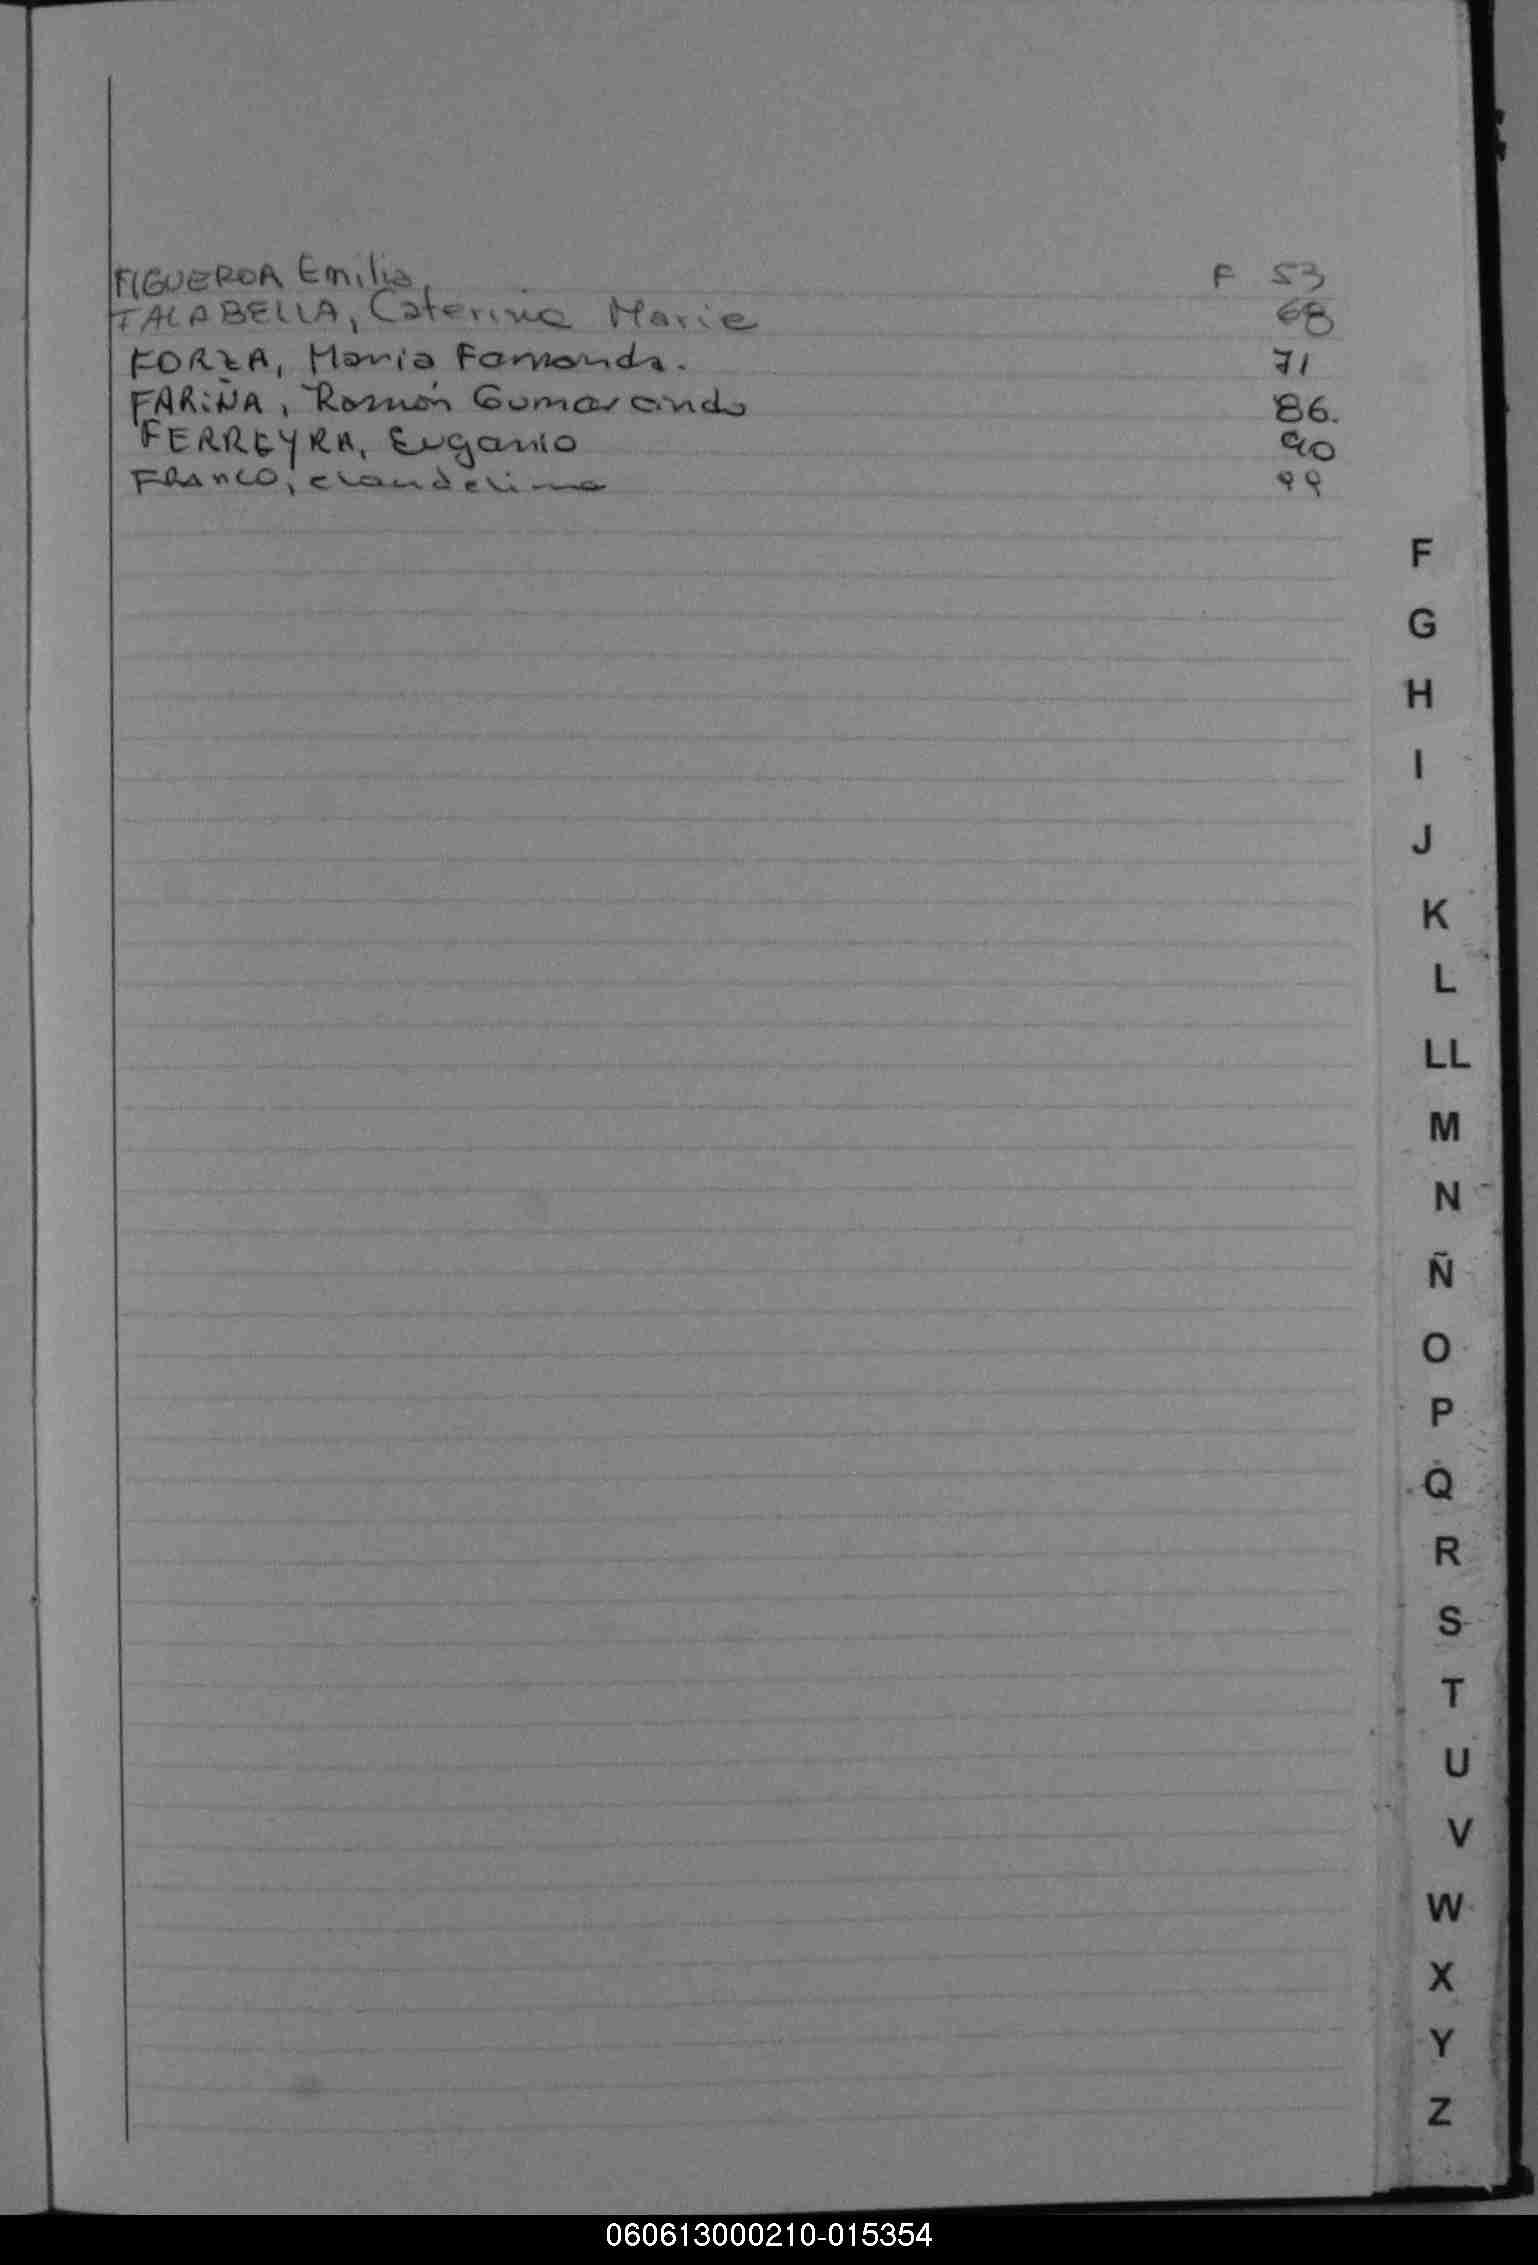 FIGUEROA Emilia, F 53
FALABELLA, Caterina Maria 68
FORZA, Maria Fernanda. 71
FARIÑA, Ramón Gumarcindo 86.
FERREYRA, Eugenio 90
FRANCO, clandelina 99
F
G
H
I
J
K
L
LL
M
N
Ñ
O
P
Q
R
S
T
U
V
W
X
Y
Z
060613000210-015354